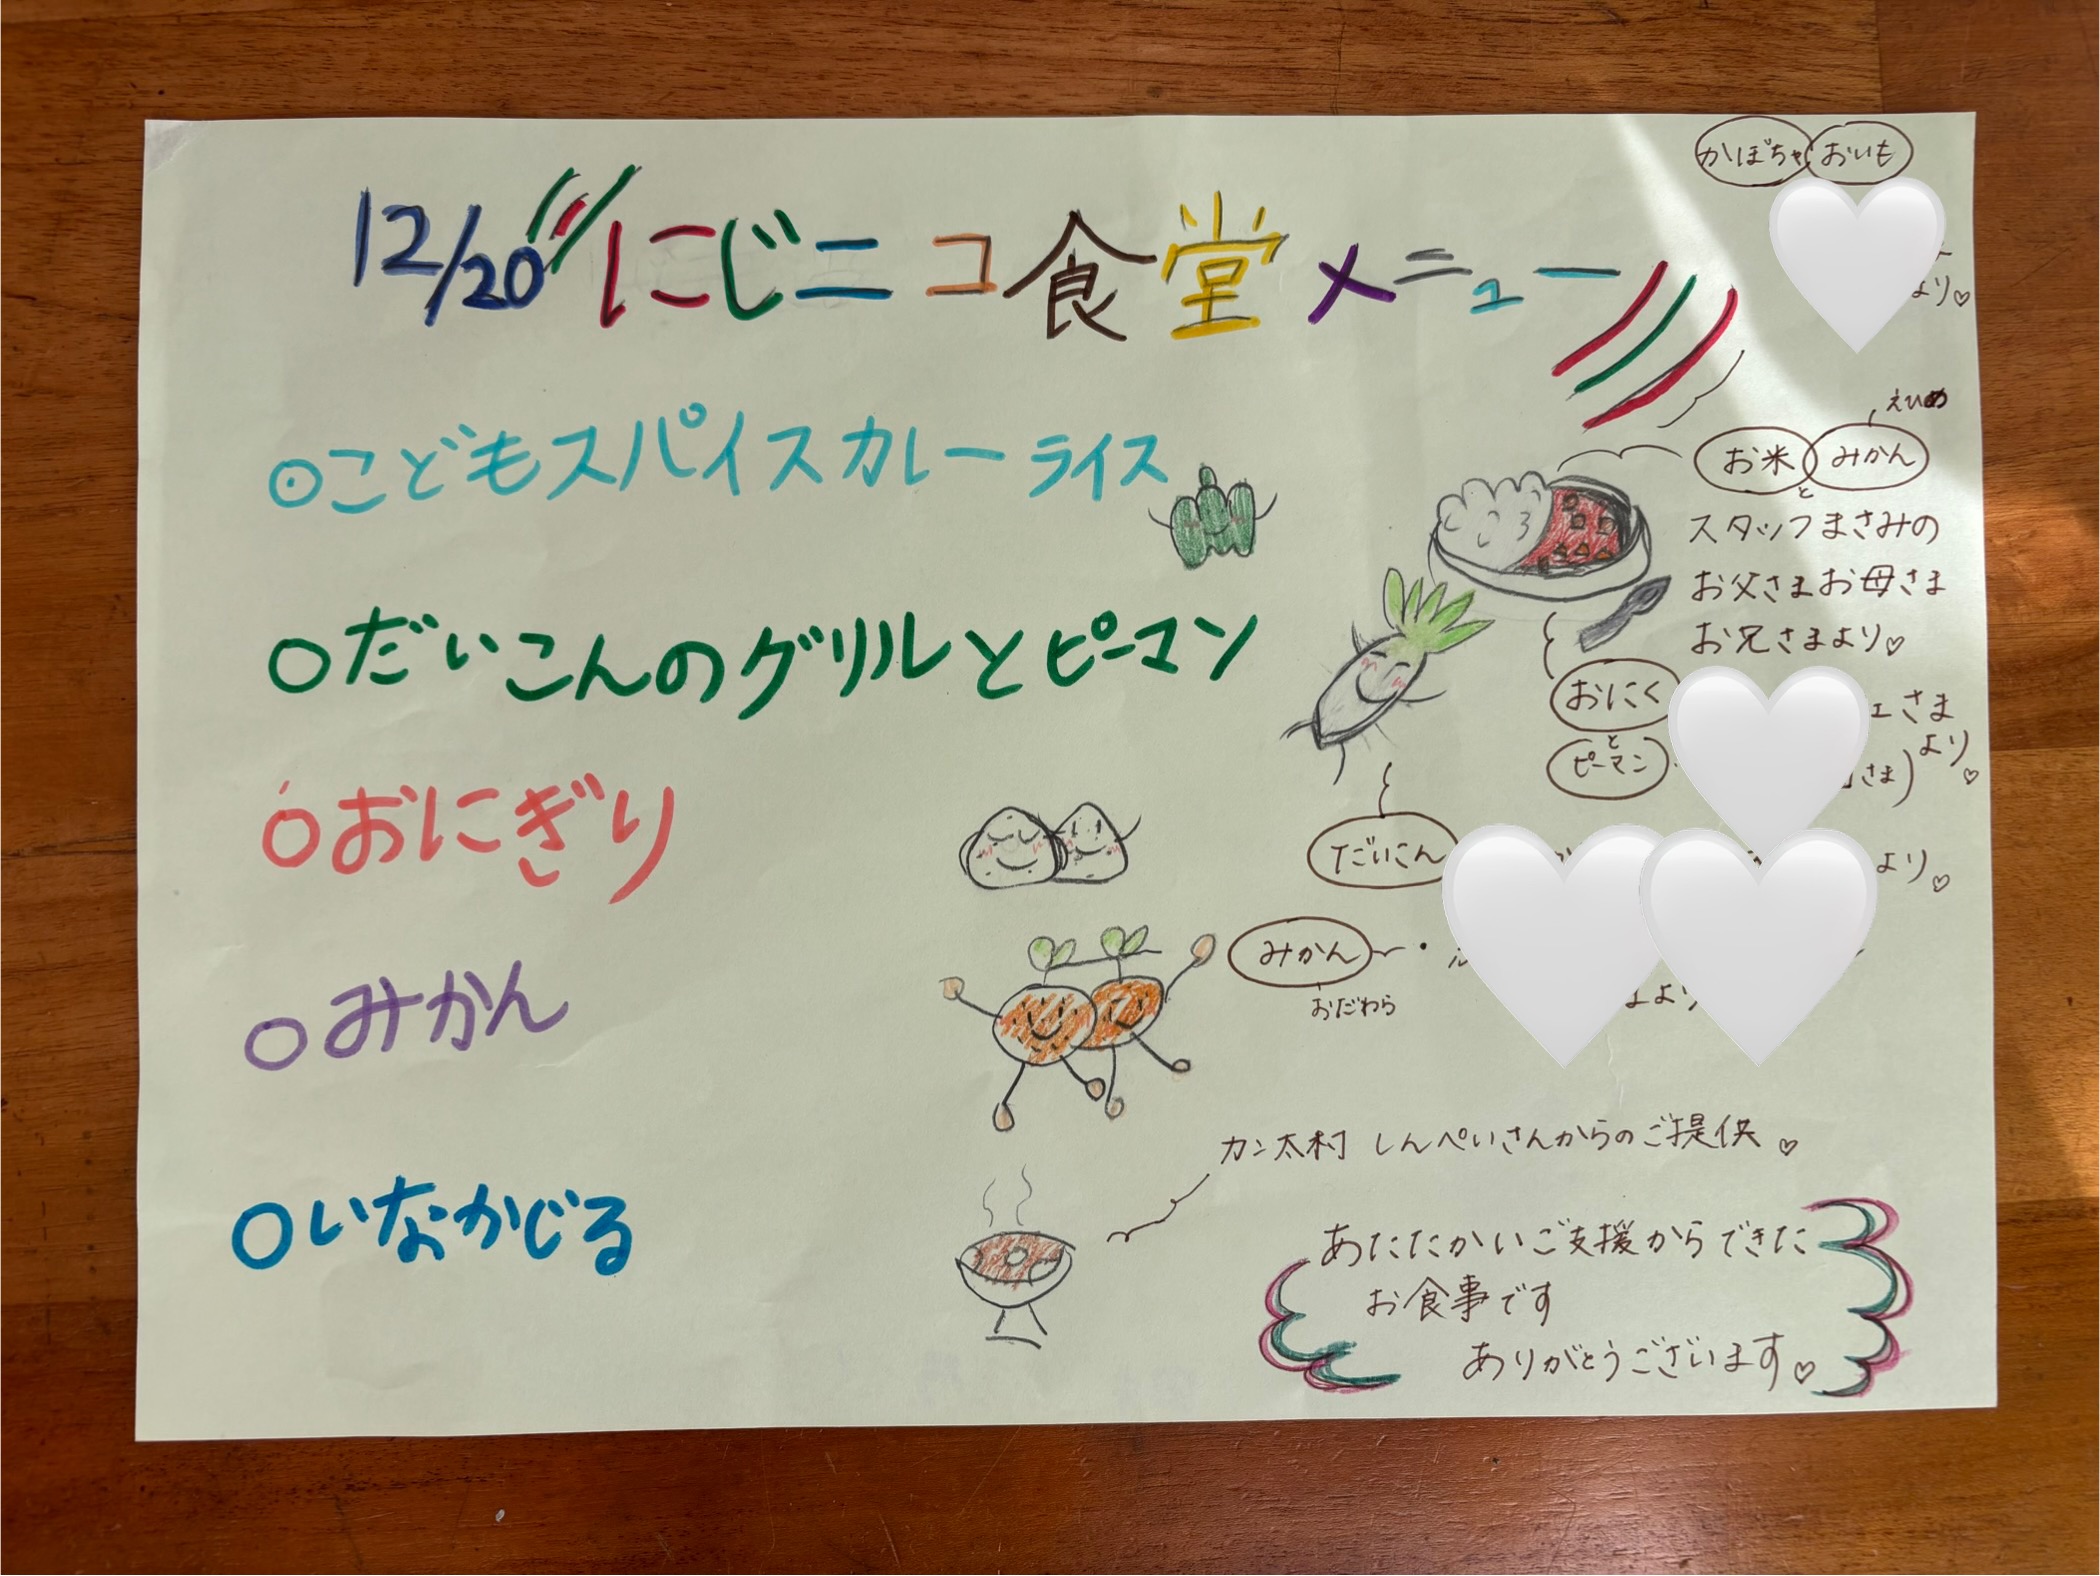 12/20 にじニコ食堂メニュー
◎こどもスパイスカレーライス
○だいこんのグリルとピーマン
○おにぎり
○みかん
○いなかじる
かぼちゃ おいも
より♡
えひめ
お米とみかん
スタッフまさみの
お父さまお母さま
お兄さまより♡
おにく
さま
と
ピーマン
さま)より♡
だいこん
より♡
みかん
おだわら
より
カン太村 しんぺいさんからのご提供♡
あたたかいご支援からできた
お食事です
ありがとうございます♡